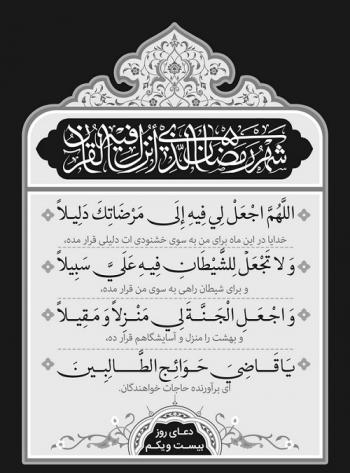 شهر رمضان الذي أنزل فيه القرآن
اللَّهُمَّ اجْعَلْ لِي فِيهِ إِلَى مَرْضَاتِكَ دَلِيلاً
خدایا در این ماه برای من به سوی خشنودی ات دلیلی قرار مده،
وَلا تَجْعَلْ لِلشَّيْطَانِ فِيهِ عَلَيَّ سَبِيلاً
و برای شیطان راهی به سوی من قرار مده،
وَاجْعَلِ الْجَنَّةَ لِي مَنْزِلاً وَمَقِيلاً
و بهشت را منزل و آسایشگاهم قرار ده،
يَا قَاضِيَ حَوَائِجِ الطَّالِبِينَ
ای برآورنده حاجات خواهندگان.
دعای روز
بیست و یکم